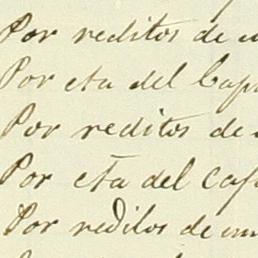 Por reditos de
Por cta del Cap
Por reditos de
Por cta del Cap
Por reditos de un